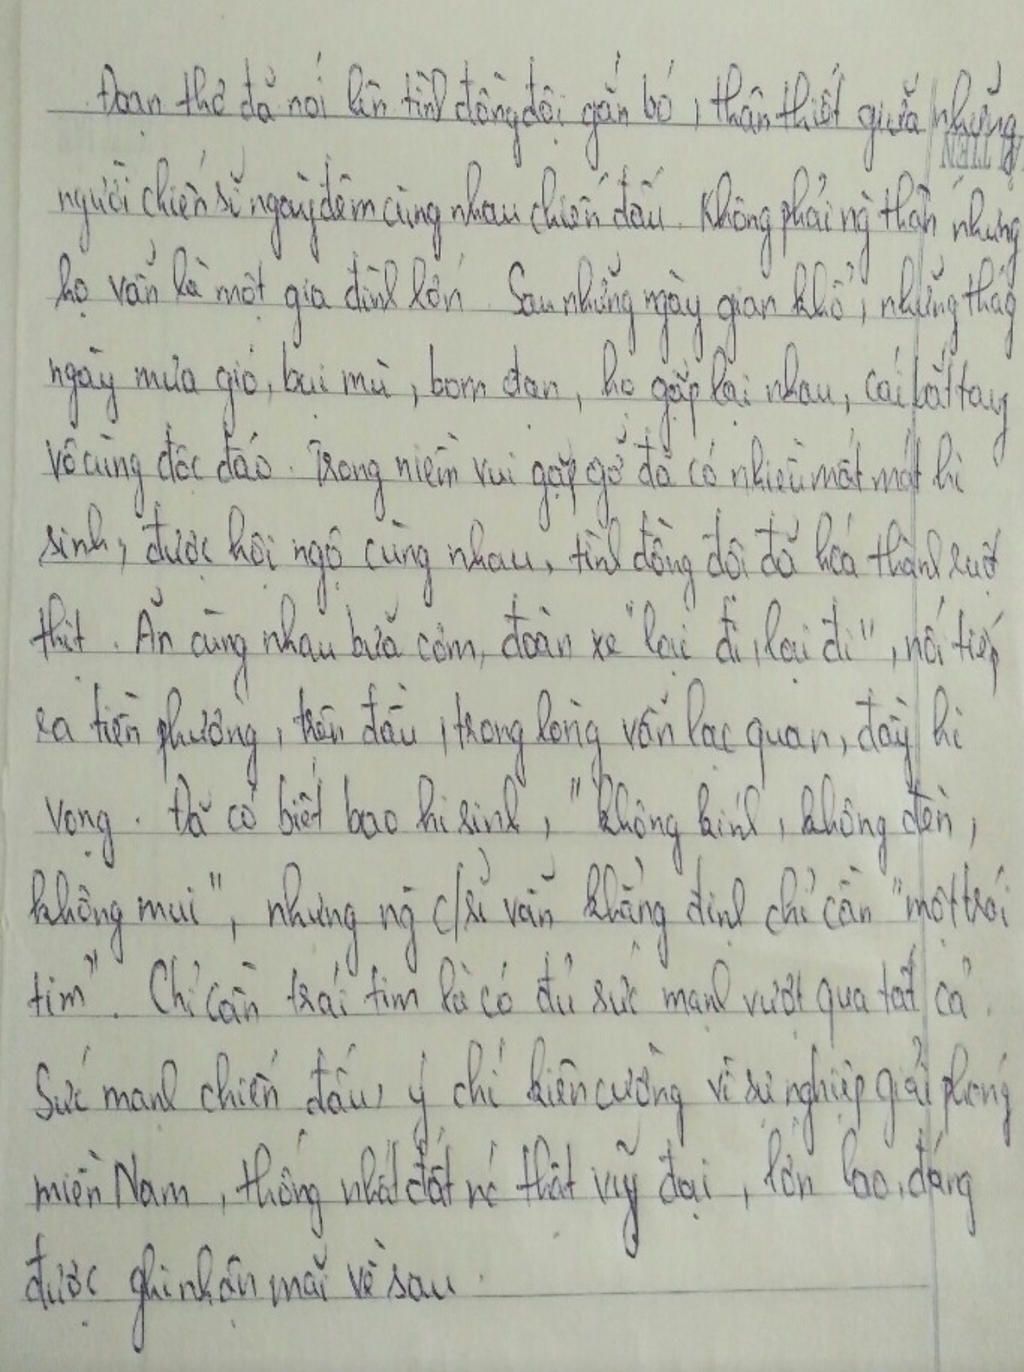 Đoạn thơ đã nói lên tình đồng đội gắn bó, thân thiết giữa những
người chiến sĩ ngày đêm cùng nhau chiến đấu. Không phải ng thân nhưng
họ vẫn là một gia đình lớn. Sau những ngày gian khổ, những thág
ngày mưa gió, bụi mù, bom đạn, họ gặp lại nhau, cái bắt tay
vô cùng độc đáo. Trong niềm vui gặp gỡ đã có nhiều mất mát hi
sinh, được hội ngộ cùng nhau, tình đồng đội đã hoá thành ruột
thịt. Ăn cùng nhau bữa cơm, đoàn xe "lại đi, lại đi", nối tiếp
ra tiền phương, trận đấu, trong lòng vẫn lạc quan, đầy hi
vọng. Đã có biết bao hi sinh, "không kính, không đèn,
không mui", nhưng ng c/sĩ vẫn khẳng định chỉ cần "một trái
tim". Chỉ cần trái tim là có đủ sức mạnh vượt qua tất cả.
Sức mạnh chiến đấu, ý chí kiên cường vì sự nghiệp giải phóng
miền Nam, thống nhất đất nc thật vĩ đại, lớn lao, đáng
được ghi nhận mãi về sau.